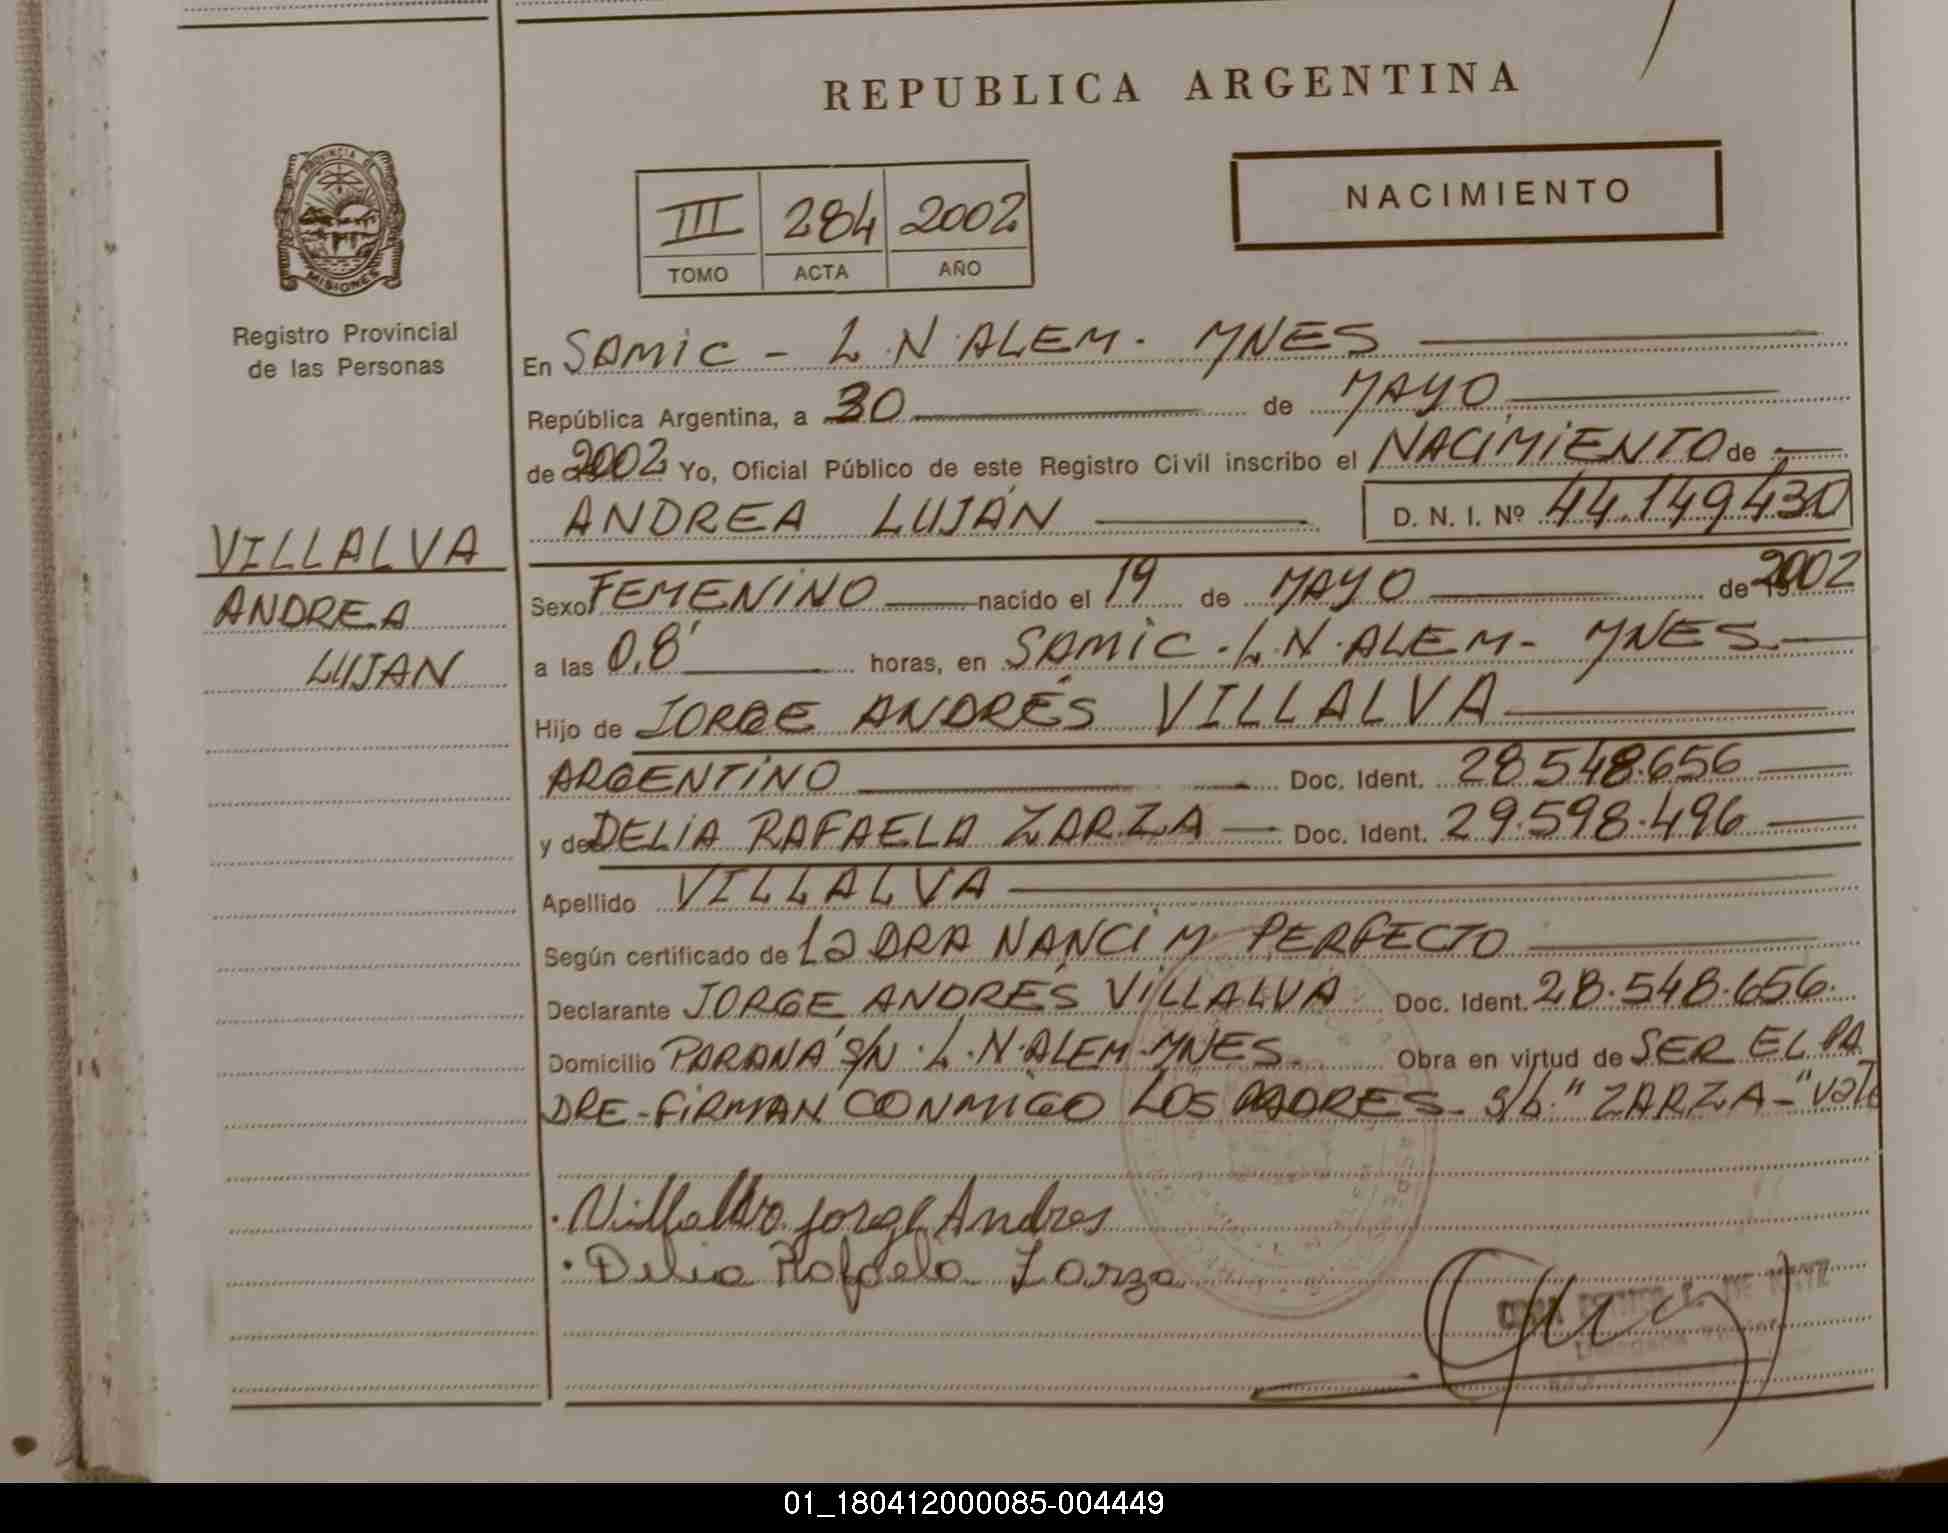 REPUBLICA ARGENTINA
NACIMIENTO
III 284 2002
TOMO ACTA AÑO
PROVINCIA DE
MISIONES
Registro Provincial
de las Personas
VILLALVA
ANDREA
LUJAN
En SAMIC - L.N.ALEM. MNES
República Argentina, a 30 de MAYO
de 2002 Yo, Oficial Público de este Registro Civil inscribo el NACIMIENTO de
ANDREA LUJÁN D. N. I. Nº 44.149.430
Sexo FEMENINO nacido el 19 de MAYO de 2002
a las 0,8' horas, en SAMIC.L.N.ALEM- MNES
Hijo de JORGE ANDRÉS VILLALVA
ARGENTINO Doc. Ident. 28.548.656
y de DELIA RAFAELA ZARZA Doc. Ident. 29.598.496
Apellido VILLALVA
Según certificado de La DRA NANCI M PERFECTO
Declarante JORGE ANDRÉS VILLALVA Doc. Ident. 28.548.656.
Domicilio PARANÁ S/N.L.N.ALEM-MNES. Obra en virtud de SER EL PA
DRE-FIRMAN CONMIGO LOS PADRES- s/b."ZARZA-"Vale
Villalva Jorge Andres
Delia Rafaela Zarza
01_180412000085-004449